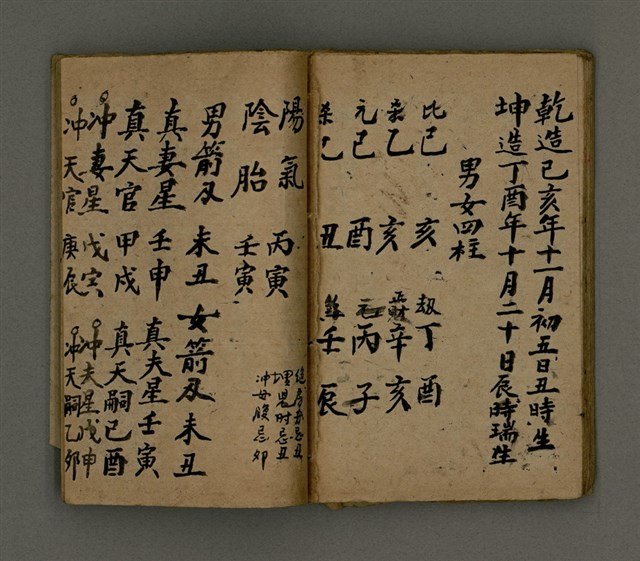 乾造己亥年十一月初五日丑時生
坤造丁酉年十月二十日辰時瑞生
男女四柱
比己 亥 劫丁 酉
乙 亥 正財辛 亥
元己 酉 元丙 子
乙 丑 壬 辰
陽氣 丙寅
陰胎 壬寅
忌丑
埋兒时忌丑
冲母腹忌卯
男箭刃 未丑 女箭刃未丑
真妻星 壬申 真夫星壬寅
真天官 甲戌 真天嗣己酉
冲妻星 戊寅 冲夫星戊申
冲天官 庚辰 冲天嗣乙卯